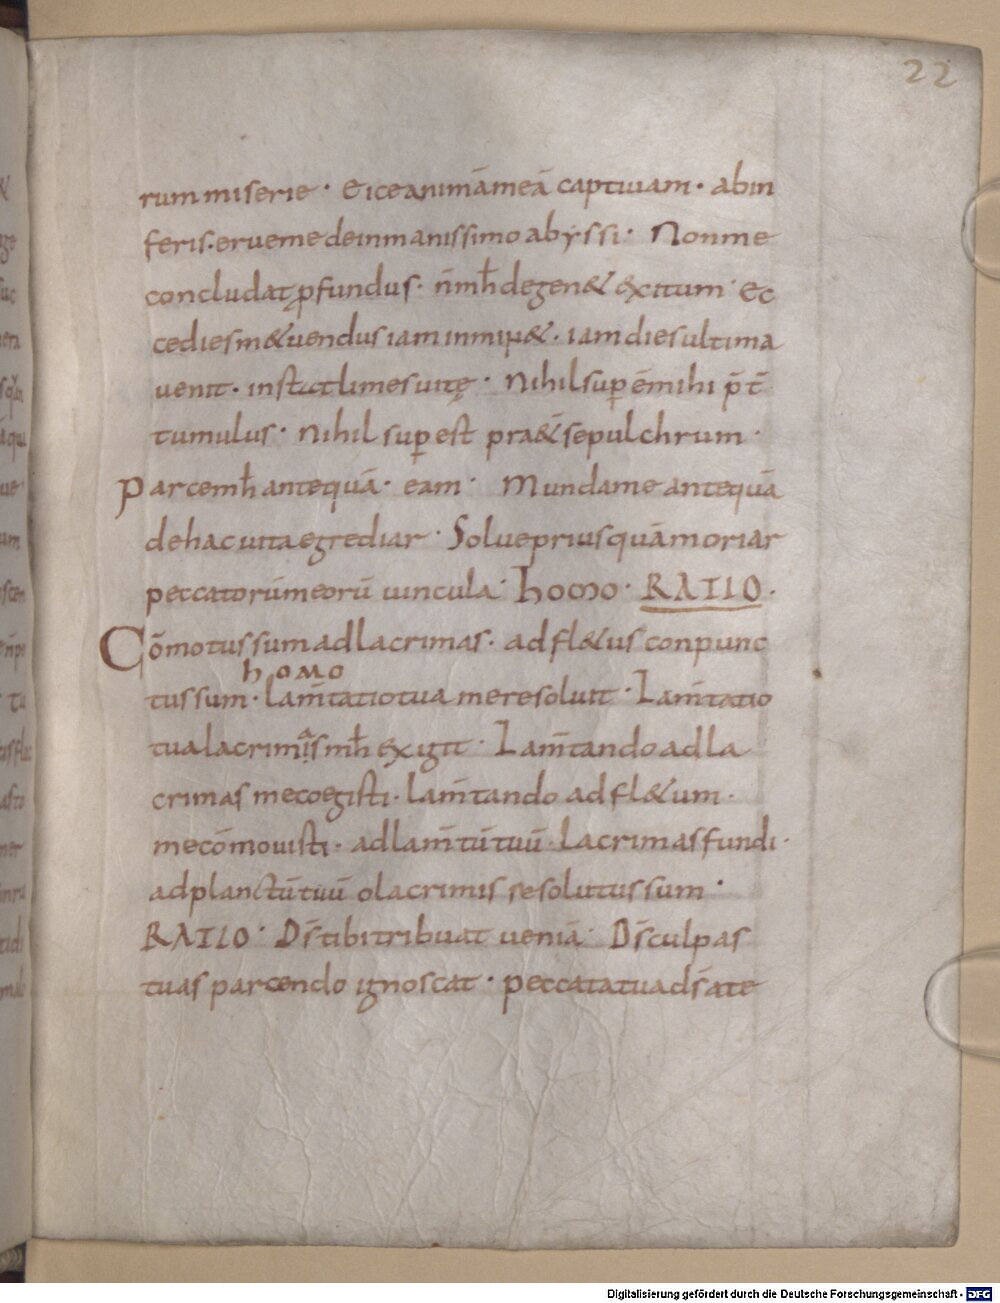 22
rum miserie · Eice animā meā captiuam · ab in
feris · erue me de inmanissimo abyssi · Non me
concludat ꝓfundus · n̄ mħ degen& exitum · Ec
ce dies m&uendus iam inmin& · iam dies ultima
uenit · instat limes uitę · Nihil sup ē mihi p̄t̄
tumulus · nihil sup est pra& sepulchrum ·
Parce mħ antequā · eam · Munda me antequā
de hac uita egrediar · Solue prius quā moriar
peccatorū meorū uincula · homo · RATIO ·
Cōmotus sum ad lacrimas · ad fl&us conpunc
homo
tus sum · Lam̄tatio tua me resoluit · Lam̄tatio
tua lacrimas mħ exigit · Lam̄tando ad la
crimas me coegisti · lam̄tando ad fl&um ·
me cōmouisti · ad lam̄tū tuū · Lacrimas fundi ·
ad planctū tuū o lacrimis resolutus sum ·
RATIO · D̄s tibi tribuat ueniā · D̄s culpas
tuas parcendo ignoscat · peccata tua d̄s a te
Digitalisierung gefördert durch die Deutsche Forschungsgemeinschaft - DFG